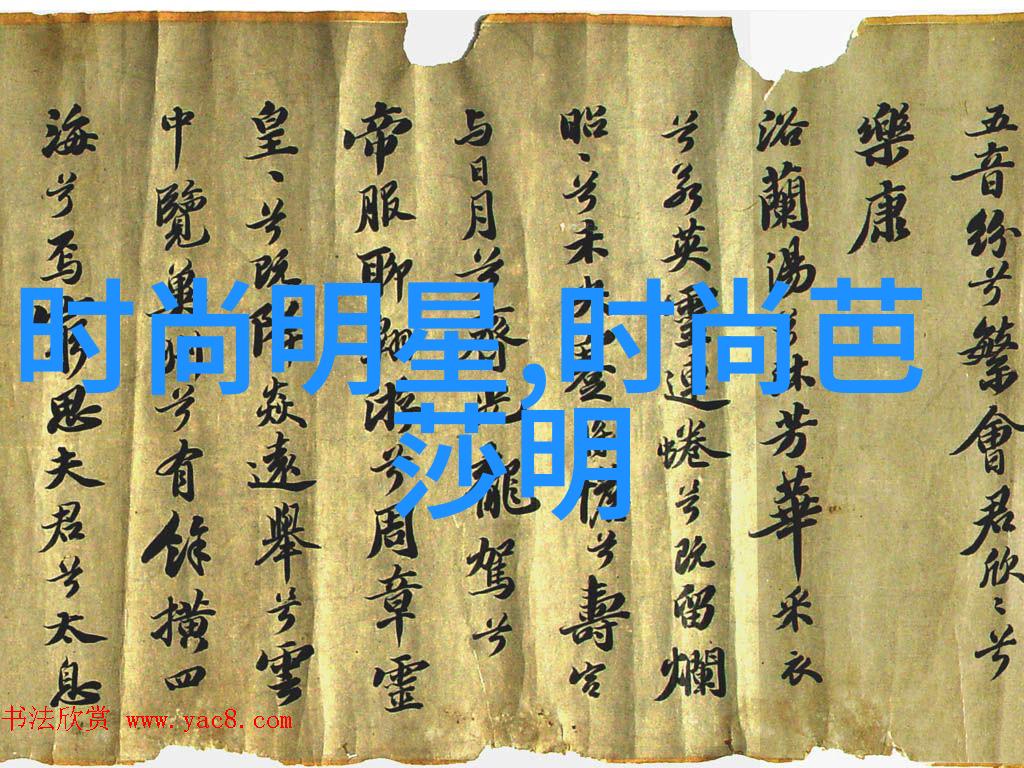 五音紛兮繁會君欣〻兮
樂康
浴蘭湯兮沐芳華采衣
兮若英靈連蜷兮既留爛
昭〻兮未央蹇兮壽宮
与日月兮齊光龍駕兮
帝服聊翱遊兮周章靈
皇〻兮既降焱遠舉兮雲
中覽冀州兮有餘橫四
海兮焉窮思夫君兮太息
时尚明星,时尚芭
莎明
书法欣赏 www.yac8.com